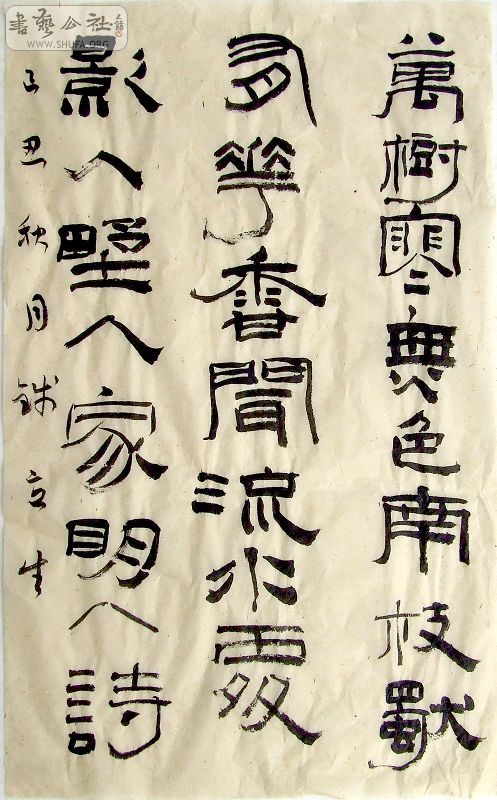 萬樹寒無色南枝獨
有華香聞流水處
影入野人家明人詩
己丑秋月錢立生
書藝公社
WWW.SHUFA.ORG